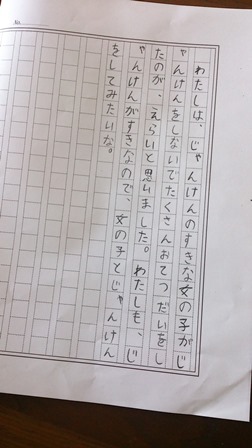 わたしは、じゃんけんのすきな女の子がじ
ゃんけんをしないでたくさんおてつだいをし
たのが、えらいと思いました。わたしも、じ
ゃんけんがすきなので、女の子とじゃんけん
をしてみたいな。
No.